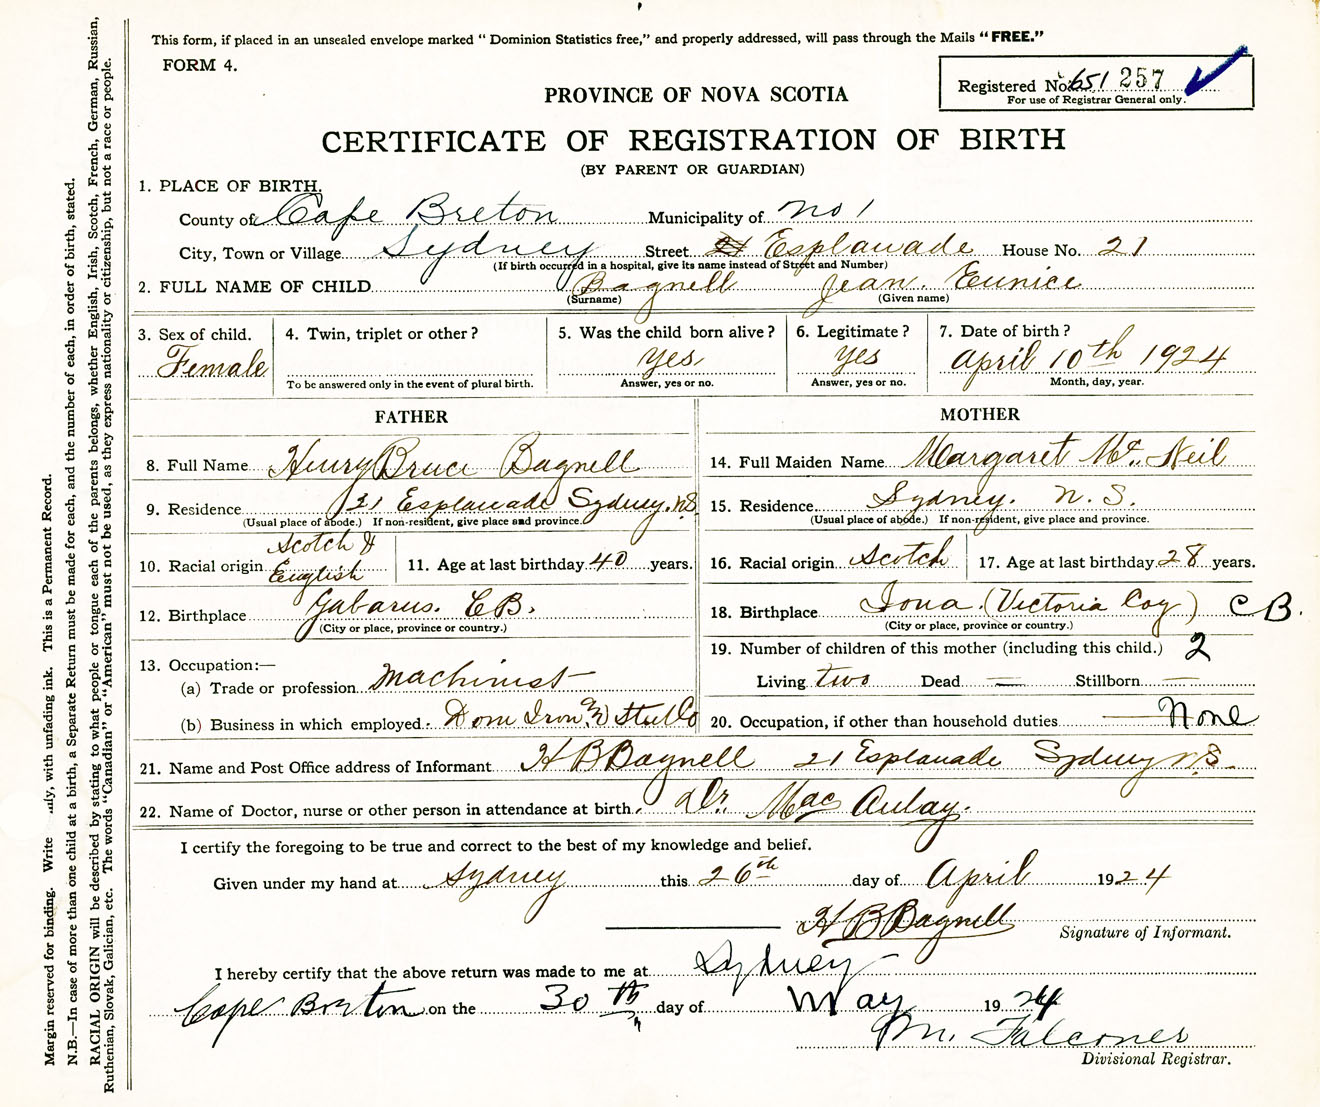 This form, if placed in an unsealed envelope marked “ Dominion Statistics free,” and properly addressed, will pass through the Mails “ FREE.”
FORM 4.
Registered No. 651 257
For use of Registrar General only.
PROVINCE OF NOVA SCOTIA
CERTIFICATE OF REGISTRATION OF BIRTH
(BY PARENT OR GUARDIAN)
1. PLACE OF BIRTH.
County of Cape Breton Municipality of No 1
City, Town or Village Sydney Street Esplanade House No. 21
(If birth occurred in a hospital, give its name instead of Street and Number)
2. FULL NAME OF CHILD Bagnell Jean Eunice
(Surname) (Given name)
3. Sex of child. Female
4. Twin, triplet or other ?
To be answered only in the event of plural birth.
5. Was the child born alive ? yes
Answer, yes or no.
6. Legitimate ? yes
Answer, yes or no.
7. Date of birth ? April 10th 1924
Month, day, year.
FATHER
8. Full Name Henry Bruce Bagnell
9. Residence 21 Esplanade Sydney. N.S.
(Usual place of abode.) If non-resident, give place and province.
10. Racial origin Scotch & English
11. Age at last birthday 40 years.
12. Birthplace Gabarus. C.B.
(City or place, province or country.)
13. Occupation:—
(a) Trade or profession Machinist
(b) Business in which employed Dom Iron & Steel Co
MOTHER
14. Full Maiden Name Margaret Mc. Neil
15. Residence Sydney. N.S.
(Usual place of abode.) If non-resident, give place and province.
16. Racial origin Scotch
17. Age at last birthday 28 years.
18. Birthplace Iona. (Victoria Coy) C B.
(City or place, province or country.)
19. Number of children of this mother (including this child.) 2
Living two Dead — Stillborn —
20. Occupation, if other than household duties — None
21. Name and Post Office address of Informant H B Bagnell 21 Esplanade Sydney N.S.
22. Name of Doctor, nurse or other person in attendance at birth. Dr. Mac Aulay.
I certify the foregoing to be true and correct to the best of my knowledge and belief.
Given under my hand at Sydney this 26th day of April 1924
H B Bagnell
Signature of Informant.
I hereby certify that the above return was made to me at Sydney
Cape Breton on the 30th day of May 1924
M. Falconer
Divisional Registrar.
Margin reserved for binding. Write with unfading ink. This is a Permanent Record.
N.B.—In case of more than one child at a birth, a Separate Return must be made for each, and the number of each, in order of birth, stated.
RACIAL ORIGIN will be described by stating to what people or tongue each of the parents belongs, whether English, Irish, Scotch, French, German, Russian,
Ruthenian, Slovak, Galician, etc. The words “Canadian” or “American” must not be used, as they express nationality or citizenship, but not a race or people.